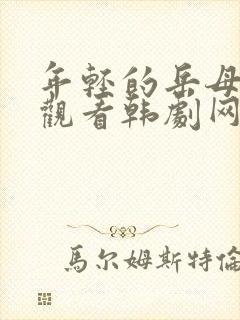 年轻的岳母
觀看韩劇网
馬尔姆斯特倫